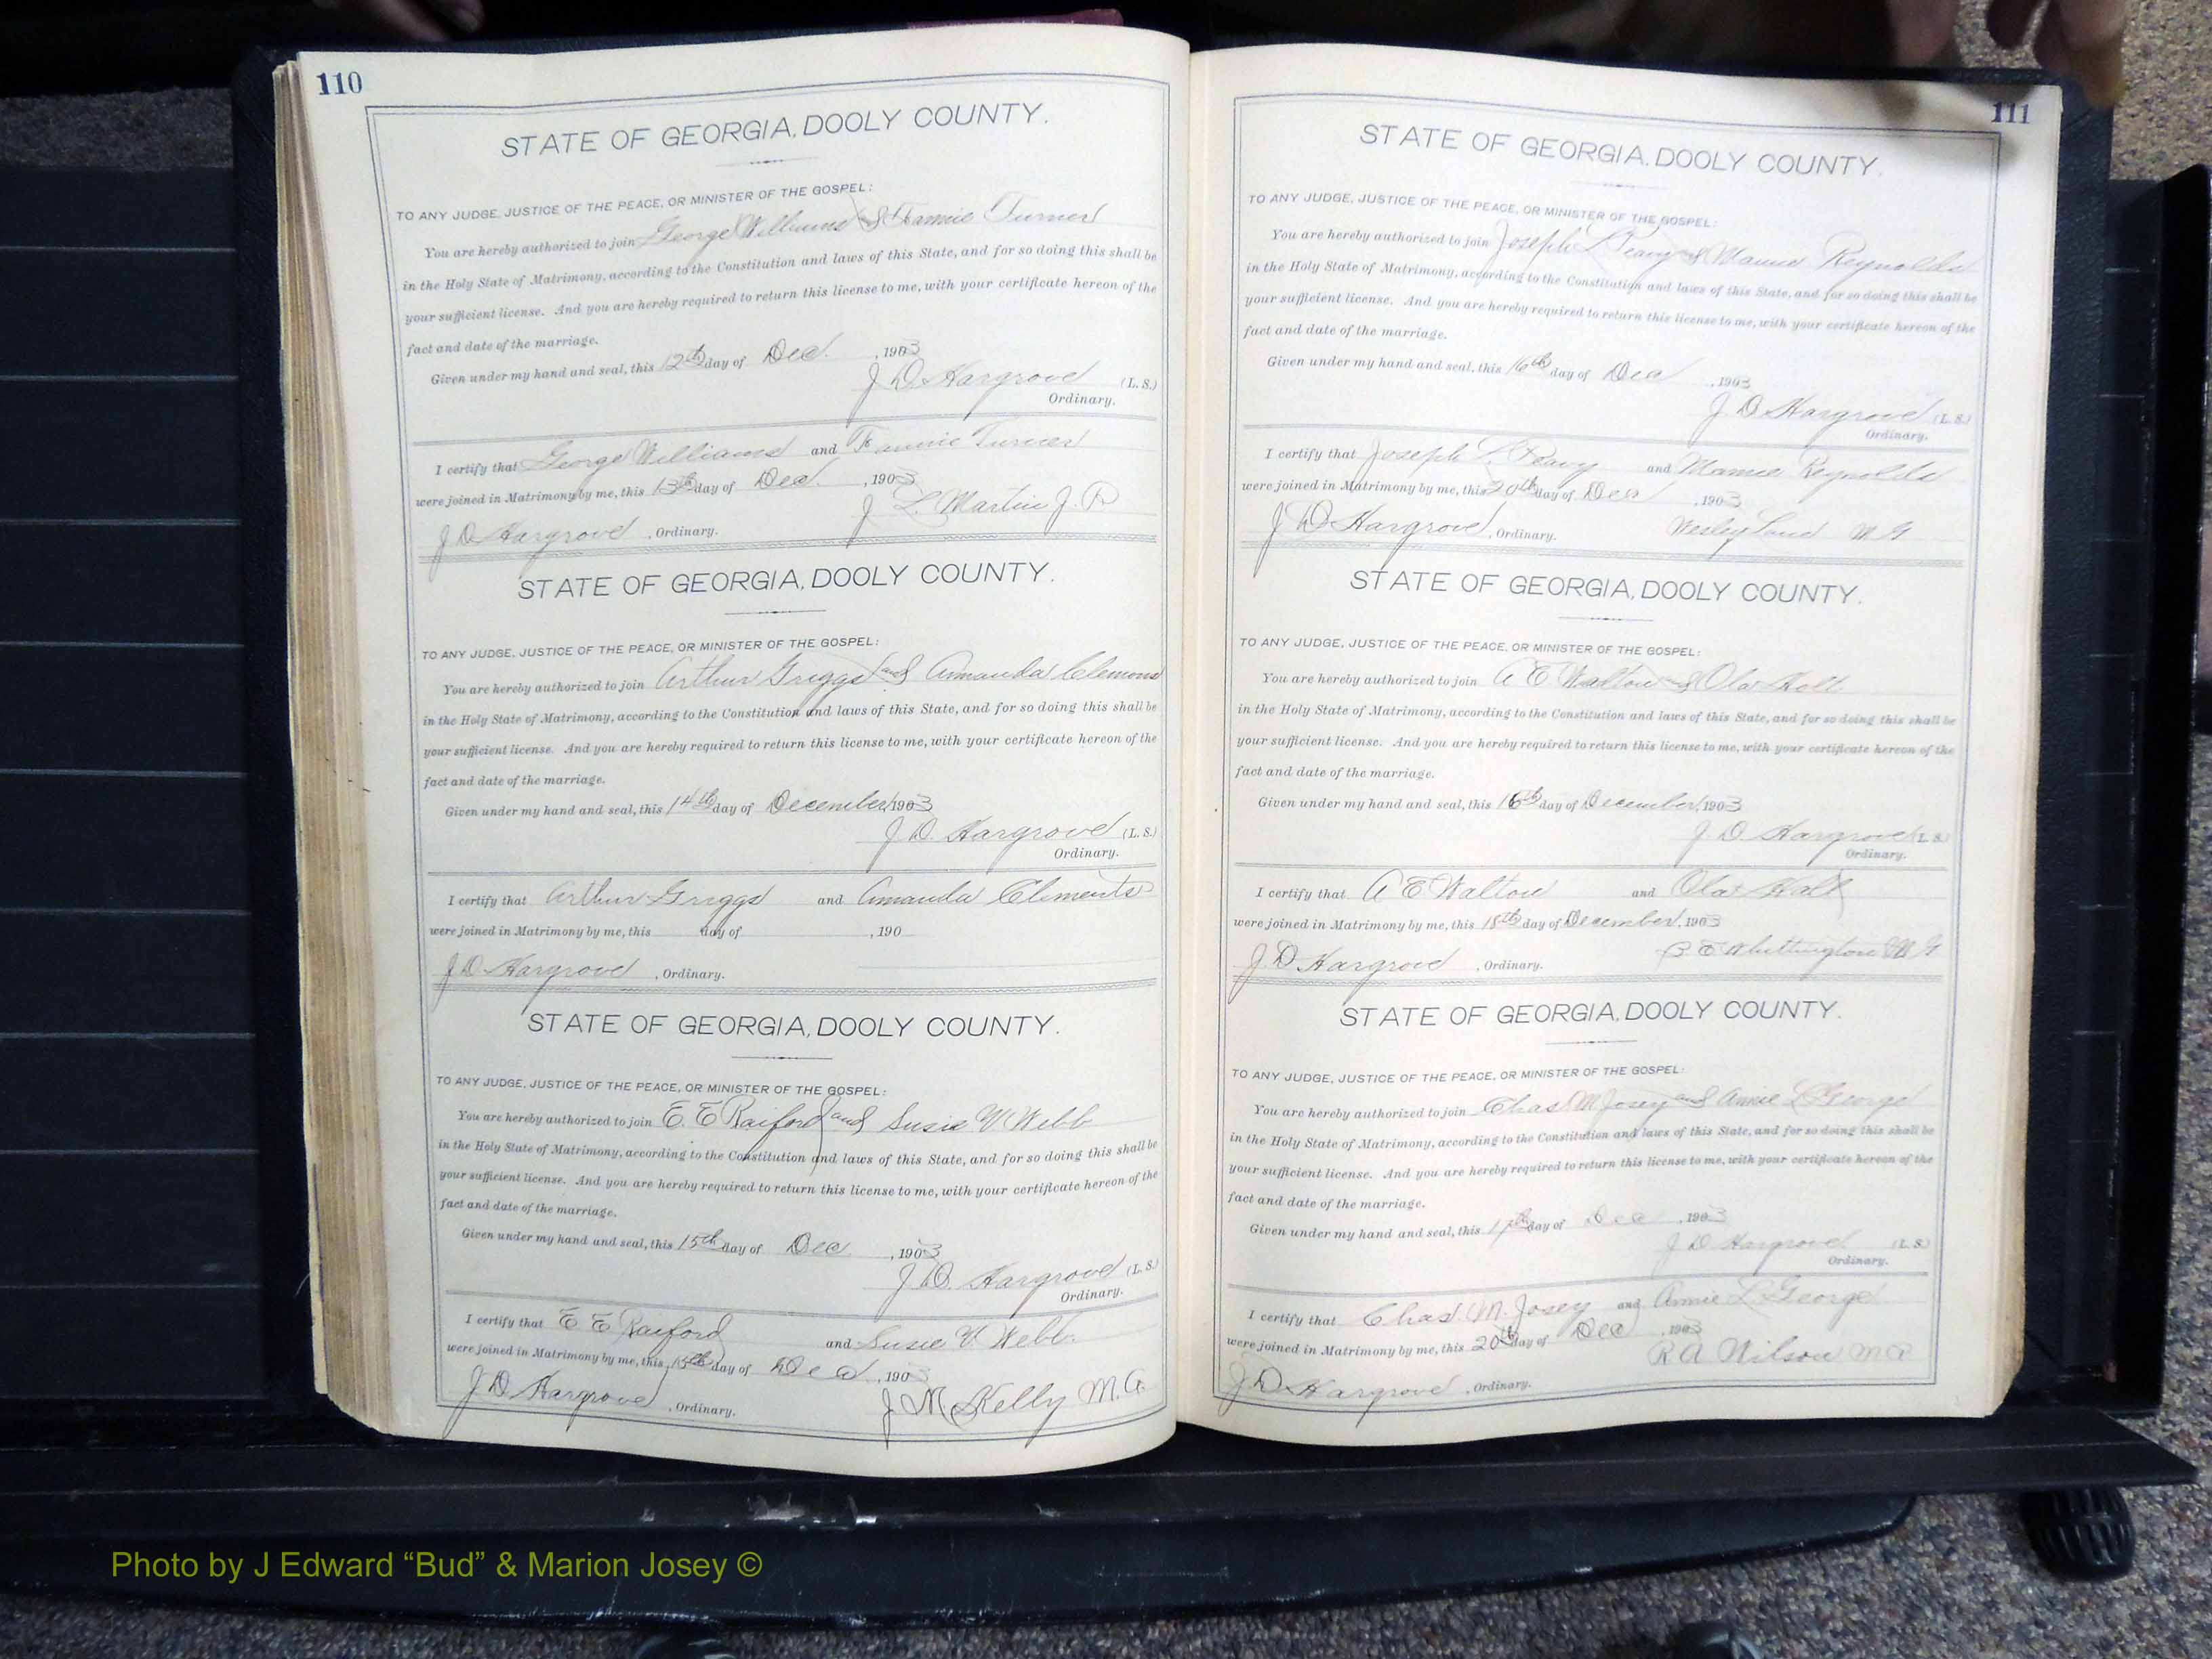 110
STATE OF GEORGIA, DOOLY COUNTY.
TO ANY JUDGE, JUSTICE OF THE PEACE, OR MINISTER OF THE GOSPEL:
You are hereby authorized to join George Williams and Fannie Turner
in the Holy State of Matrimony, according to the Constitution and laws of this State, and for so doing this shall be
your sufficient license. And you are hereby required to return this license to me, with your certificate hereon of the
fact and date of the marriage.
Given under my hand and seal, this 12th day of Dec. , 1903
J D Hargrove (L. S.)
Ordinary.
I certify that George Williams and Fannie Turner
were joined in Matrimony by me, this 13th day of Dec. , 1903
J L. Martin J. P
J D Hargrove , Ordinary.
STATE OF GEORGIA, DOOLY COUNTY.
TO ANY JUDGE, JUSTICE OF THE PEACE, OR MINISTER OF THE GOSPEL:
You are hereby authorized to join Arthur Griggs and Amanda Clemons
in the Holy State of Matrimony, according to the Constitution and laws of this State, and for so doing this shall be
your sufficient license. And you are hereby required to return this license to me, with your certificate hereon of the
fact and date of the marriage.
Given under my hand and seal, this 14th day of December, 1903
J. D. Hargrove (L. S.)
Ordinary.
I certify that Arthur Griggs and Amanda Clements
were joined in Matrimony by me, this day of , 190
J D Hargrove , Ordinary.
STATE OF GEORGIA, DOOLY COUNTY.
TO ANY JUDGE, JUSTICE OF THE PEACE, OR MINISTER OF THE GOSPEL:
You are hereby authorized to join E. E Raiford and Susie V Webb
in the Holy State of Matrimony, according to the Constitution and laws of this State, and for so doing this shall be
your sufficient license. And you are hereby required to return this license to me, with your certificate hereon of the
fact and date of the marriage.
Given under my hand and seal, this 15th day of Dec , 1903
J. D. Hargrove (L. S.)
Ordinary.
I certify that E E Raiford and Susie V. Webb
were joined in Matrimony by me, this 15th day of Dec , 1903
J D Hargrove , Ordinary. J M Kelly M. G.
111
STATE OF GEORGIA, DOOLY COUNTY.
TO ANY JUDGE, JUSTICE OF THE PEACE, OR MINISTER OF THE GOSPEL:
You are hereby authorized to join Joseph L Peavy and Mamie Reynolds
in the Holy State of Matrimony, according to the Constitution and laws of this State, and for so doing this shall be
your sufficient license. And you are hereby required to return this license to me, with your certificate hereon of the
fact and date of the marriage.
Given under my hand and seal, this 16th day of Dec , 1903
J. D Hargrove (L. S.)
Ordinary.
I certify that Joseph L Peavy and Mamie Reynolds
were joined in Matrimony by me, this 20th day of Dec , 1903
J D Hargrove , Ordinary. Wesley M G
STATE OF GEORGIA, DOOLY COUNTY.
TO ANY JUDGE, JUSTICE OF THE PEACE, OR MINISTER OF THE GOSPEL:
You are hereby authorized to join A E Walton and Ola Holt
in the Holy State of Matrimony, according to the Constitution and laws of this State, and for so doing this shall be
your sufficient license. And you are hereby required to return this license to me, with your certificate hereon of the
fact and date of the marriage.
Given under my hand and seal, this 16th day of December, 1903
J. D. Hargrove (L. S.)
Ordinary.
I certify that A E Walton and Ola Holt
were joined in Matrimony by me, this 18th day of December, 1903
J. D Hargrove , Ordinary. E Whittington M G
STATE OF GEORGIA, DOOLY COUNTY.
TO ANY JUDGE, JUSTICE OF THE PEACE, OR MINISTER OF THE GOSPEL:
You are hereby authorized to join Chas M Josey and Annie L George
in the Holy State of Matrimony, according to the Constitution and laws of this State, and for so doing this shall be
your sufficient license. And you are hereby required to return this license to me, with your certificate hereon of the
fact and date of the marriage.
Given under my hand and seal, this 17th day of Dec , 1903
J D Hargrove (L. S.)
Ordinary.
I certify that Chas. M. Josey and Annie L George
were joined in Matrimony by me, this 20th day of Dec , 1903
R A Wilson M G
J D Hargrove , Ordinary.
Photo by J Edward “Bud” & Marion Josey ©